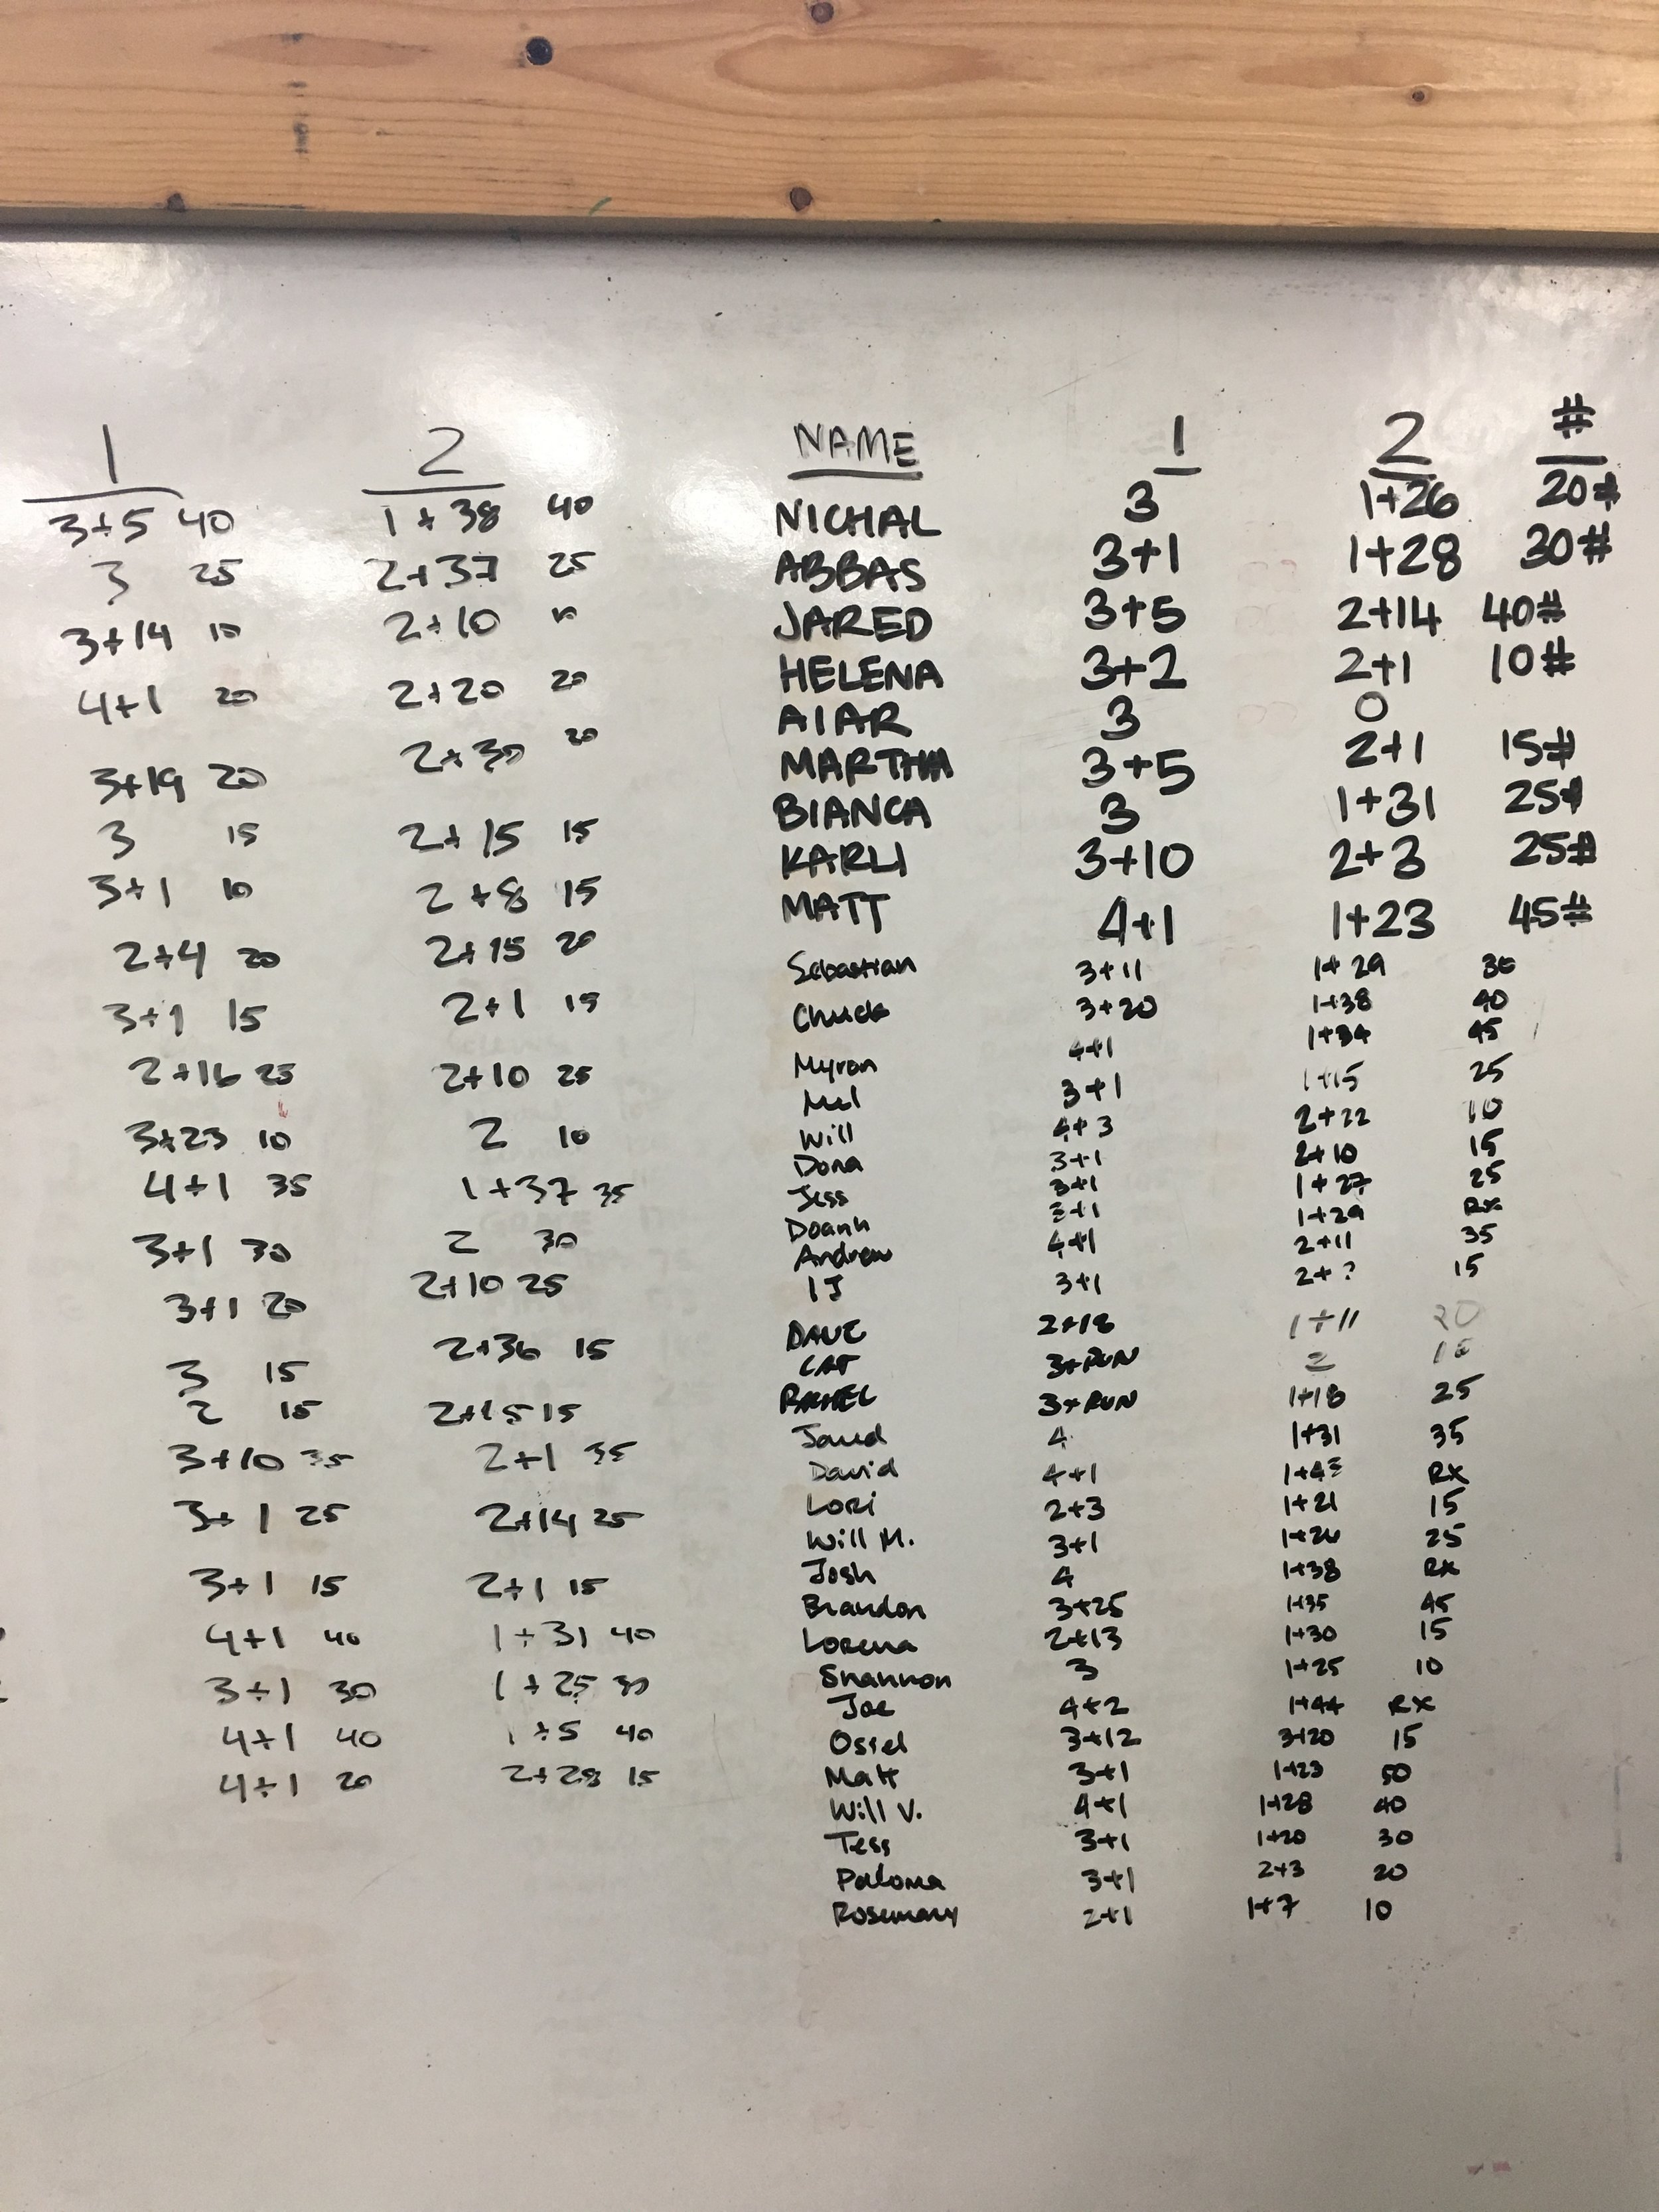 1 2
3+5 40 1+38 40
3 25 2+37 25
3+14 10 2+10 10
4+1 20 2+20 20
3+19 20 2+30 20
3 15 2+15 15
3+1 10 2+8 15
2+4 20 2+15 20
3+1 15 2+1 15
2+16 25 2+10 25
3+23 10 2 10
4+1 35 1+37 35
3+1 30 2 30
3+1 20 2+10 25
3 15 2+36 15
2 15 2+15 15
3+10 35 2+1 35
3+1 25 2+14 25
3+1 15 2+1 15
4+1 40 1+31 40
3+1 30 1+25 30
4+1 40 1+5 40
4+1 20 2+28 15
NAME 1 2 #
NICHAL 3 1+26 20#
ABBAS 3+1 1+28 30#
JARED 3+5 2+14 40#
HELENA 3+2 2+1 10#
AIAR 3 0
MARTHA 3+5 2+1 15#
BIANCA 3 1+31 25#
KARLI 3+10 2+3 25#
MATT 4+1 1+23 45#
Sebastian 3+11 1+29 30
Chuck 3+20 1+38 40
Myron 4+1 1+34 45
Mel 3+1 1+15 25
Will 4+3 2+22 10
Dona 3+1 2+10 15
Jess 3+1 1+27 25
Doanh 3+1 1+29 Rx
Andrew 4+1 2+11 35
IJ 3+1 2+? 15
DAVE 2+18 1+11 20
CAT 3+RUN 2
RACHEL 3+RUN 1+18 25
Jared 4 1+31 35
David 4+1 1+43 RX
Lori 2+3 1+21 15
Will M. 3+1 1+26 25
Josh 4 1+38 RX
Brandon 3+25 1+35 45
Lorena 2+13 1+30 15
Shannon 3 1+25 10
Joe 4+2 1+44 RX
Osiel 3+12 3+20 15
Matt 3+1 1+23 50
Will V. 4+1 1+28 40
Tess 3+1 1+20 30
Paloma 3+1 2+3 20
Rosemary 2+1 1+7 10